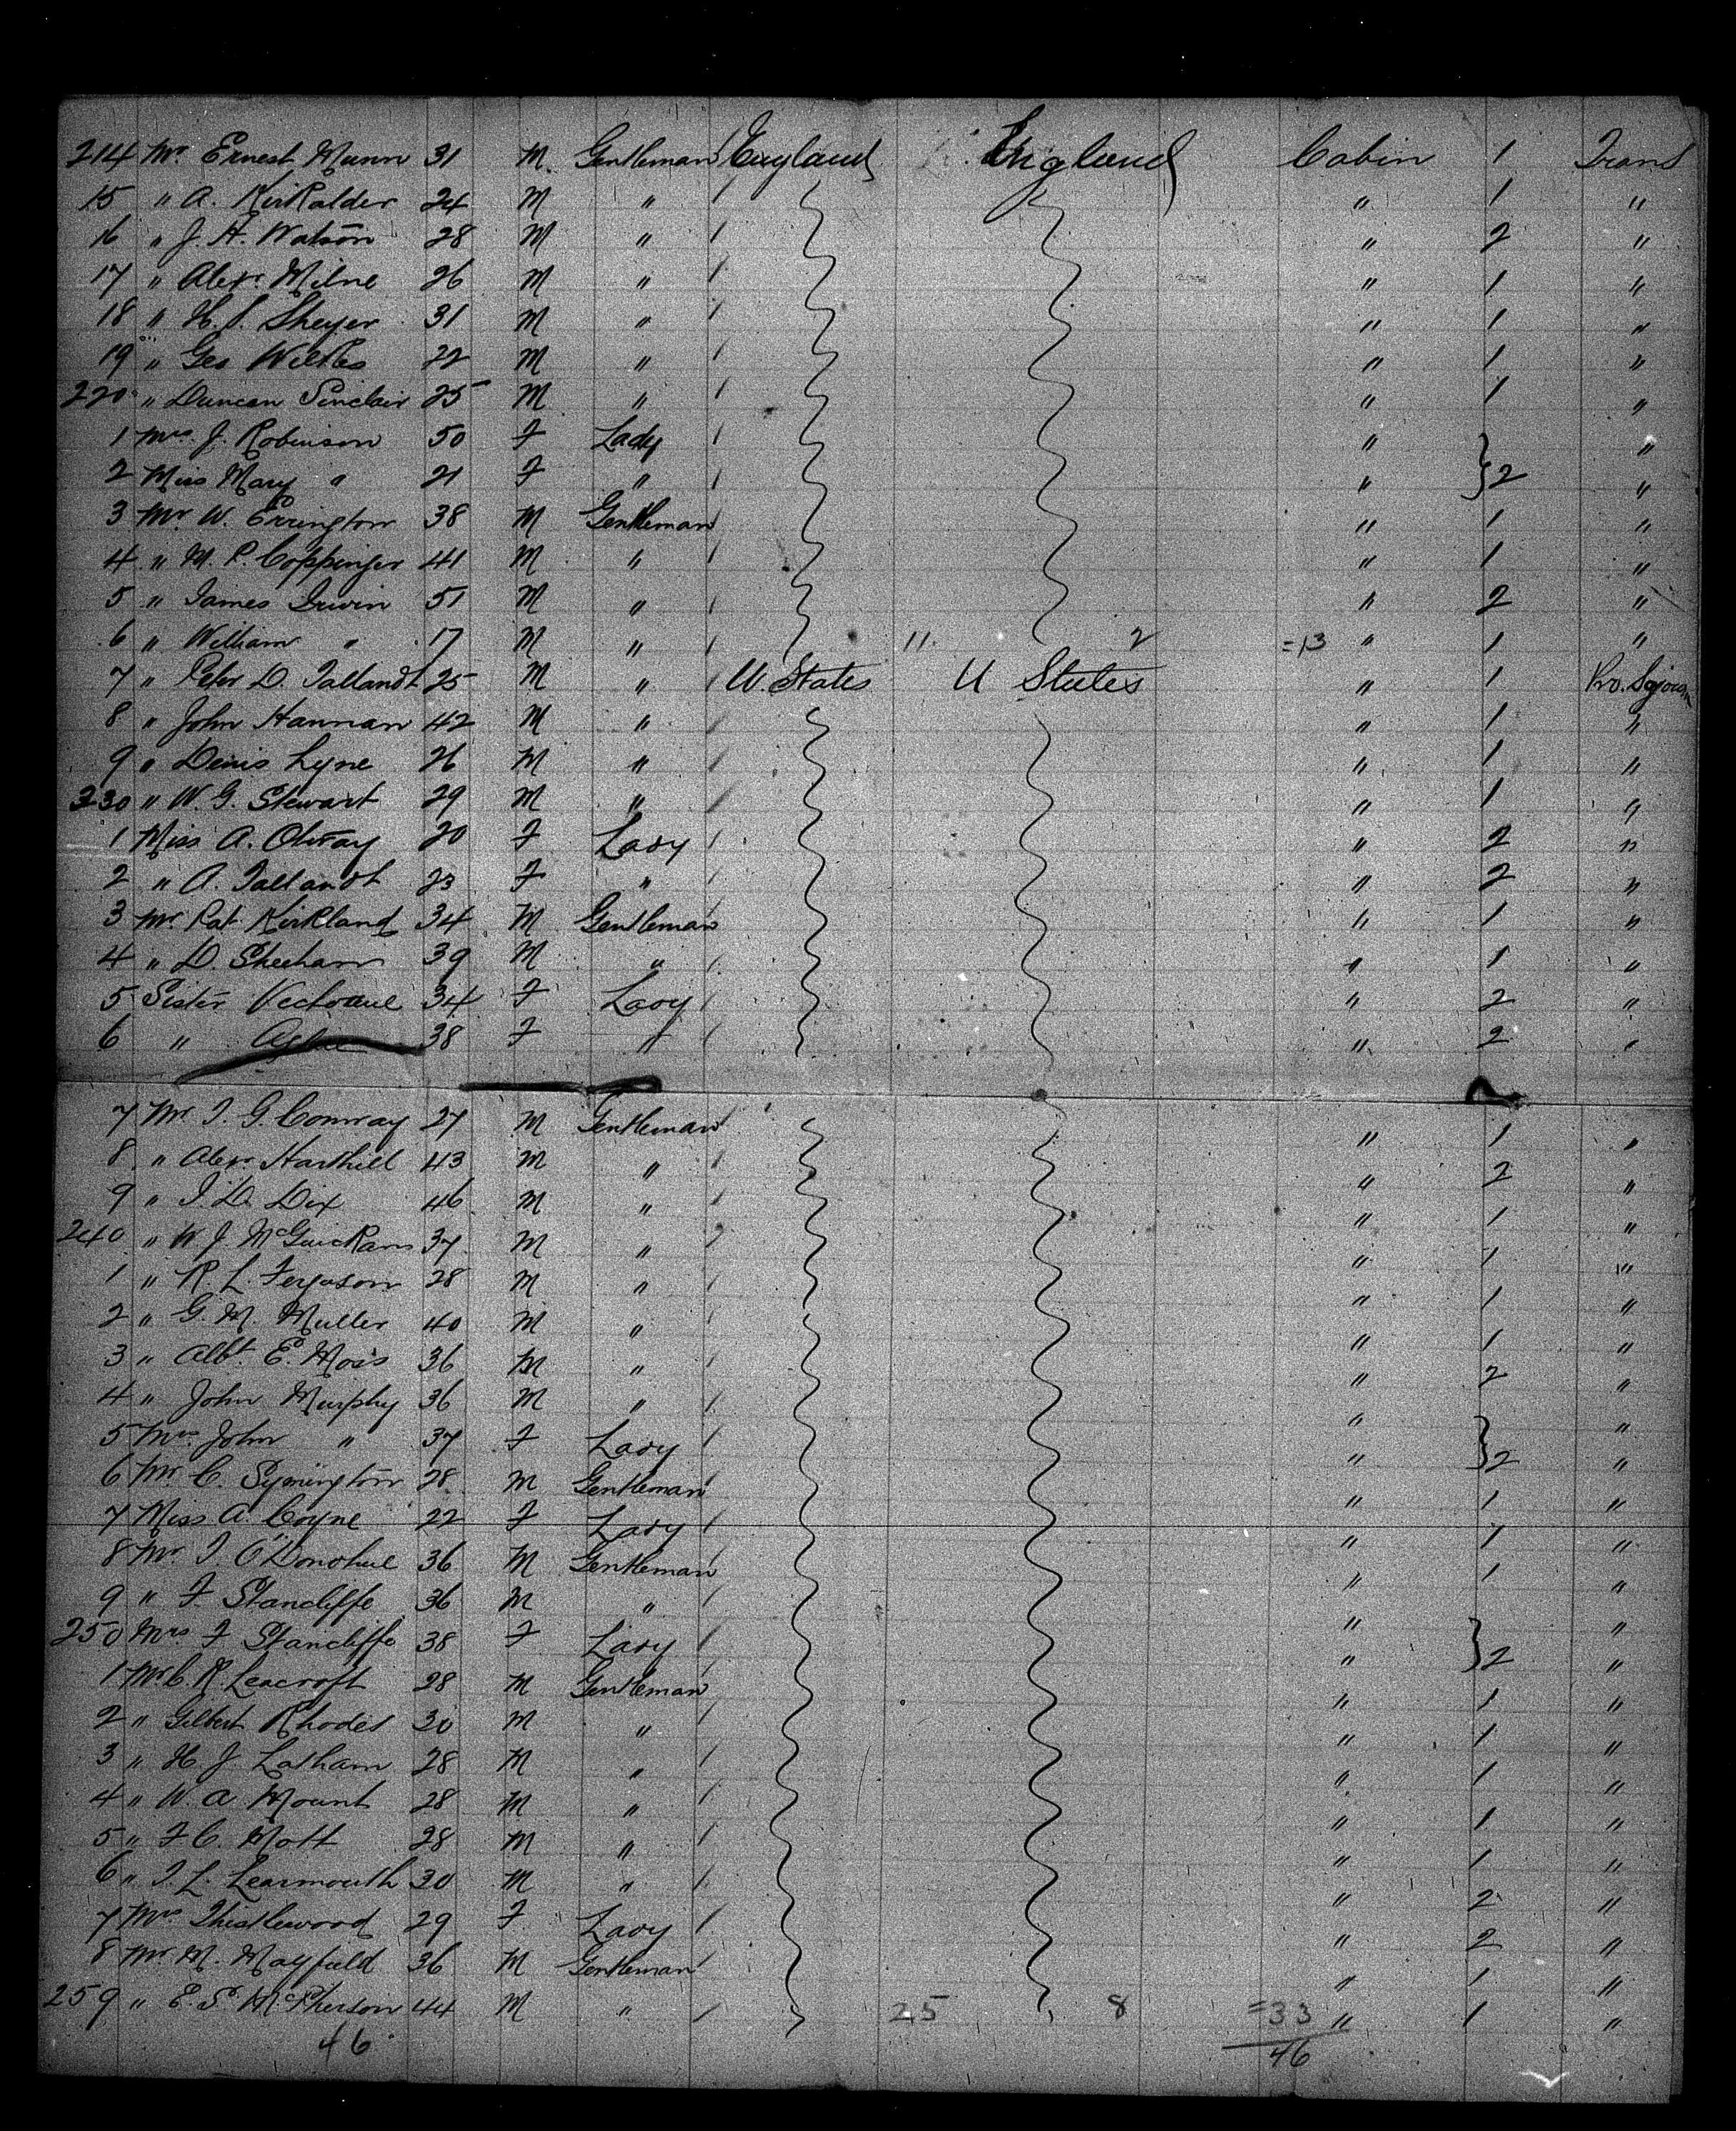 214 Mr Ernest Munn 31 M Gentleman England England Cabin 1 Trans
15 " A. Kirkalder 24 M " " 1 "
16 " J. H. Watson 28 M " " 2 "
17 " Alexr Milne 26 M " " 1 "
18 " H. J. Sheyer 31 M " " 1 "
19 " Geo Wilkes 22 M " " 1 "
220 " Duncan Sinclair 25 M " " 1 "
1 Mrs J. Robinson 50 F Lady " "
2 Miss Mary " 21 F " " } 2 "
3 Mr W. Errington 38 M Gentleman " 1 "
4 " M. P. Coppinger 41 M " " 1 "
5 " James Irwin 51 M " " 2 "
6 " William " 17 M " 11. 2 =13 " 1 "
7 " Peter D. Tallandt 25 M " U. States U States " 1 Pro. Sojourn
8 " John Hannan 42 M " " 1 "
9 " Denis Lyne 26 M " " 1 "
230 " W. G. Stewart 29 M " " 1 "
1 Miss A. Otway 20 F Lady " 2 "
2 " A. Tallandt 23 F " " 2 "
3 Mr. Pat Kirkland 34 M Gentleman " 1 "
4 " D. Sheehan 39 M " " 1 "
5 Sister 34 F Lady " 2 "
6 " 38 F " " 2 "
7 Mr. T. G. Conway 27 M Gentleman " 1 "
8 " Alexr Harthill 43 M " " 2 "
9 " J. D. Dix 46 M " " 1 "
240 " W J. McGuickan 37 M " " 1 "
1 " R. L. Ferguson 28 M " " 1 "
2 " G. M. Muller 40 M " " 1 "
3 " Albt. E. Mois 36 M " " 2 "
4 " John Murphy 36 M " " "
5 Mrs John " 37 F Lady " } 2 "
6 Mr C. Symington 28 M Gentleman " 1 "
7 Miss A. Coyne 22 F Lady " 1 "
8 Mr. T. O'Donohue 36 M Gentleman " 1 "
9 " F. Stancliffe 36 M " " "
250 Mrs F Stancliffe 38 F Lady " } 2 "
1 Mr C. R. Leacroft 28 M Gentleman " 1 "
2 " Gilbert Rhodes 30 M " " 1 "
3 " H J. Latham 28 M " " 1 "
4 " W. A Mount 28 M " " 1 "
5 " F C. Mott 28 M " " 1 "
6 " T. L. Learmouth 30 M " " 2 "
7 Mrs Thistlewood 29 F Lady " 2 "
8 Mr. M. Mayfield 36 M Gentleman " 1 "
259 " E. S. McPherson 44 M " 25 8 =33 " 1 "
46 46